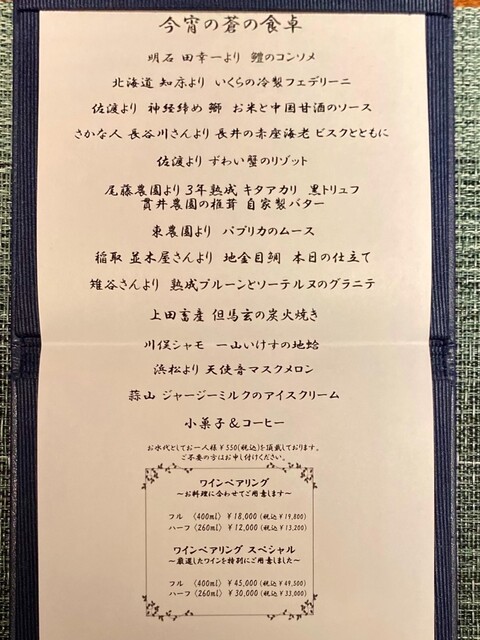 今宵の蒼の食卓
明石 田幸一より 鱧のコンソメ
北海道 知床より いくらの冷製フェデリーニ
佐渡より 神経締め 鰤 お米と中国甘酒のソース
さかな人 長谷川さんより 長井の赤座海老 ビスクとともに
佐渡より ずわい蟹のリゾット
尾藤農園より 3年熟成 キタアカリ 黒トリュフ
貫井農園の椎茸 自家製バター
東農園より パプリカのムース
稲取 並木屋さんより 地金目鯛 本日の仕立て
雉谷さんより 熟成プルーンとソーテルヌのグラニテ
上田畜産 但馬玄の炭火焼き
川俣シャモ 一山いけすの地蛤
浜松より 天使音マスクメロン
蒜山 ジャージーミルクのアイスクリーム
小菓子&コーヒー
お水代としてお一人様¥550(税込)を頂戴しております。
ご不要の方はお申し付けください。
ワインペアリング
～お料理に合わせてご用意します～
フル (400ml) ¥18,000 (税込¥19,800)
ハーフ (260ml) ¥12,000 (税込¥13,200)
ワインペアリング スペシャル
～厳選したワインを特別にご用意しました～
フル (400ml) ¥45,000 (税込¥49,500)
ハーフ (260ml) ¥30,000 (税込¥33,000)